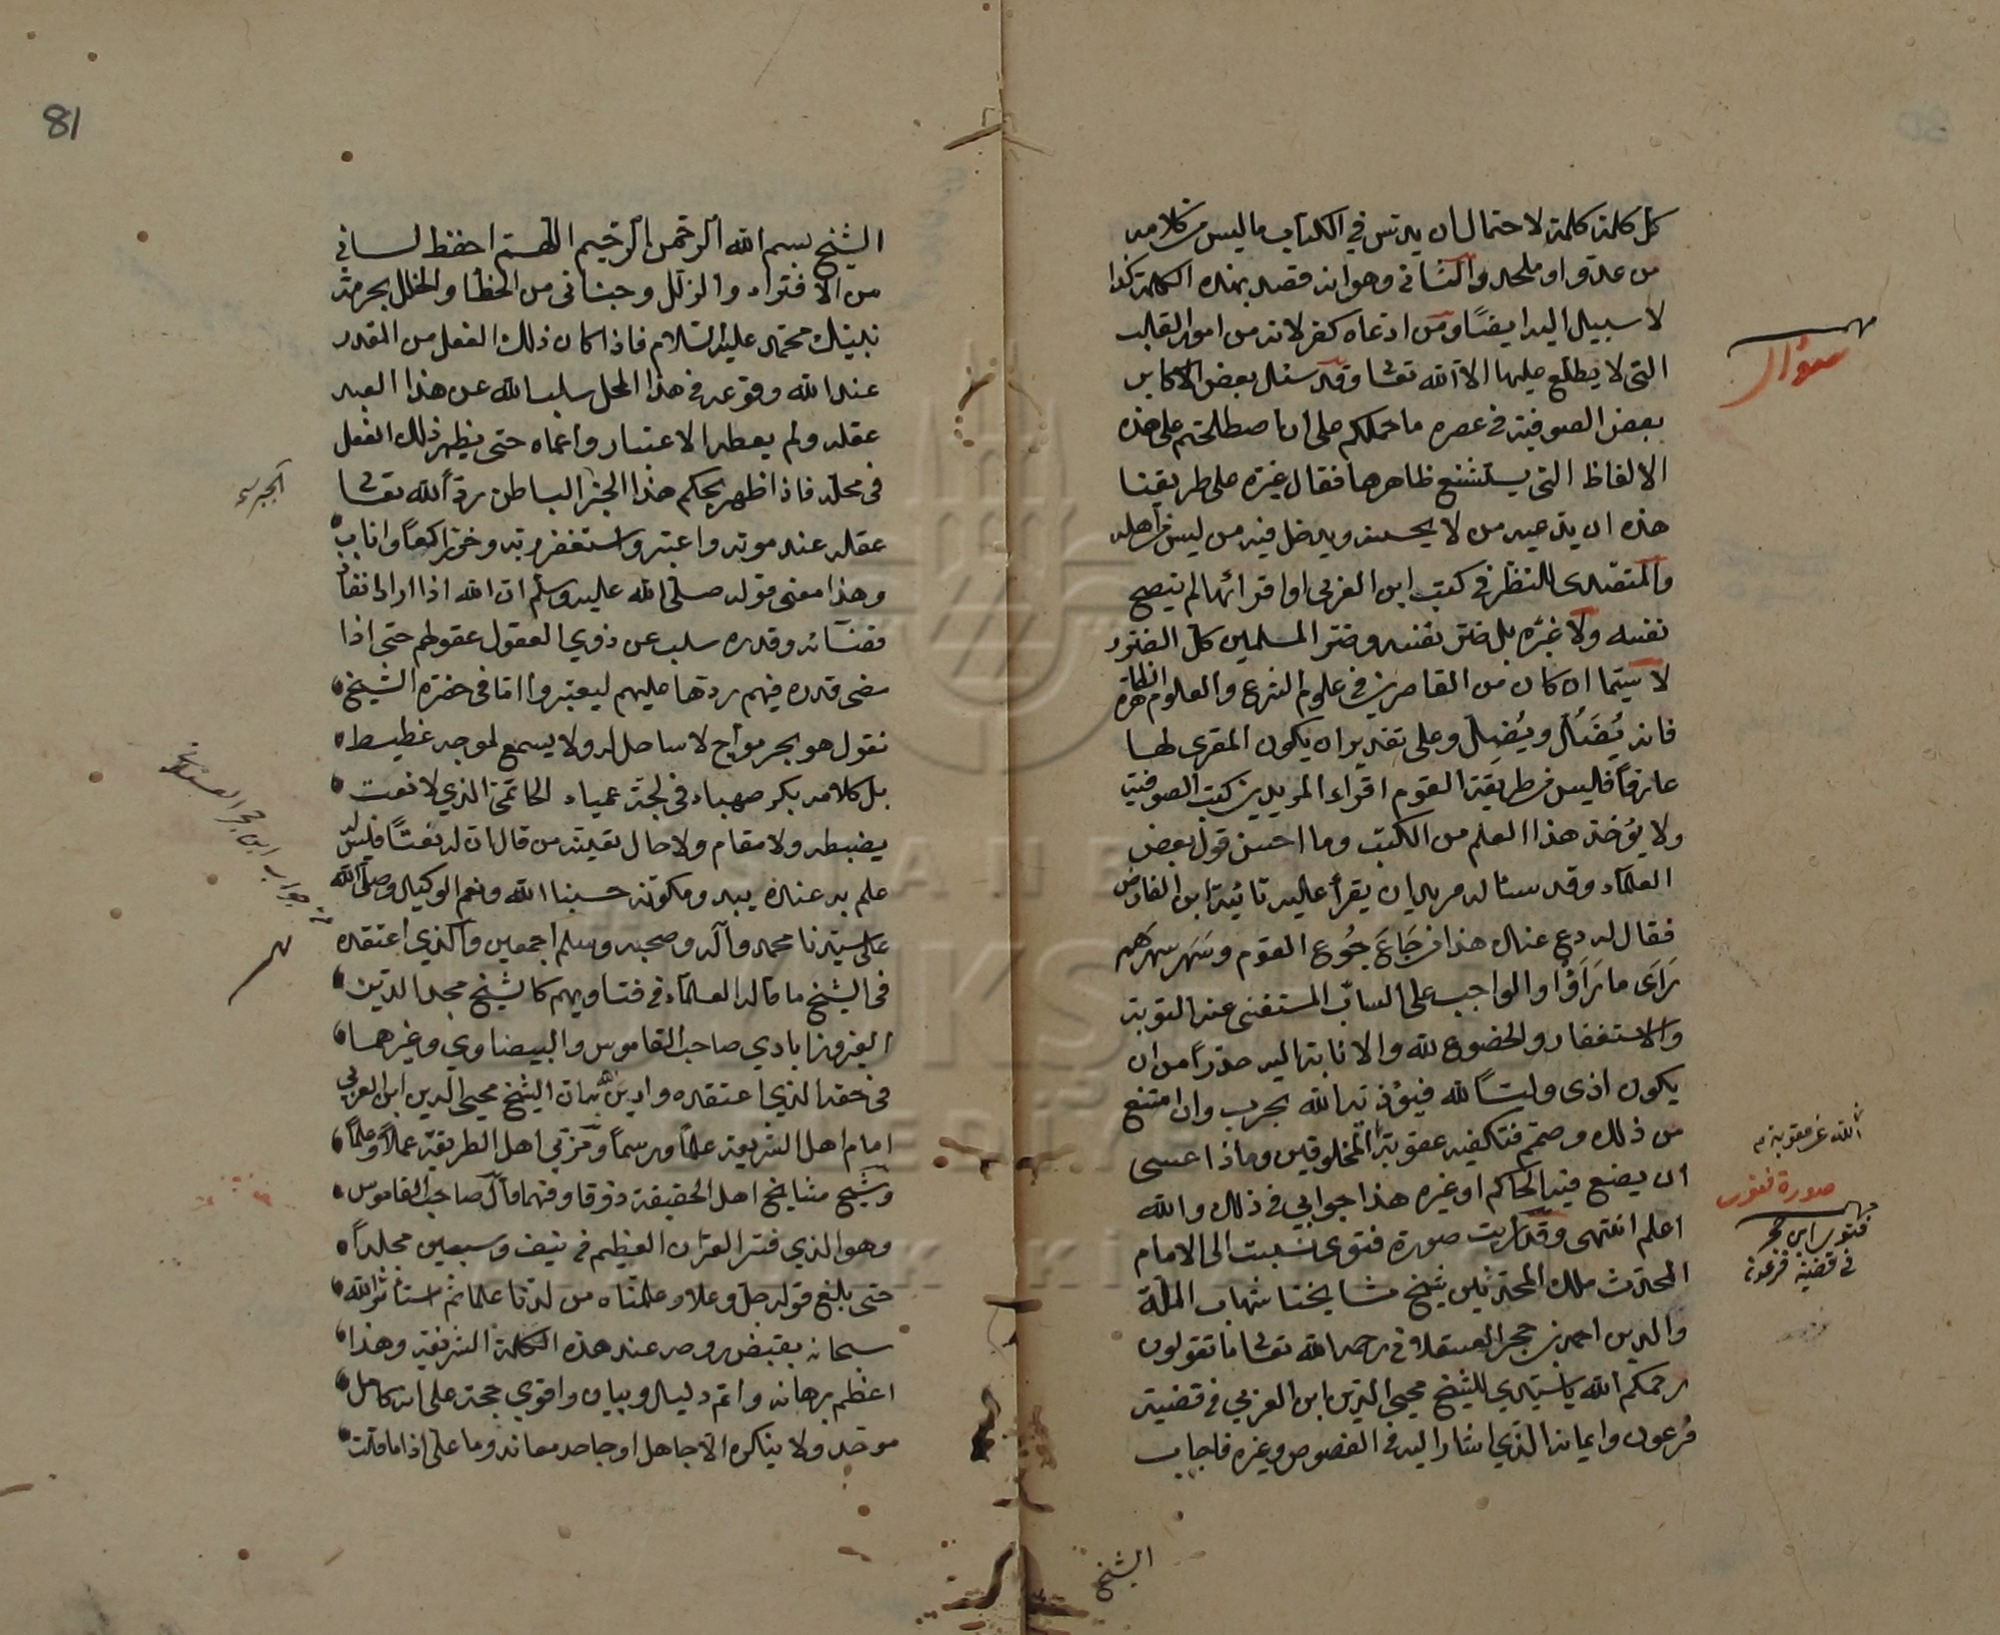 كل كلمة كلمة لاحتمال ان يدس في الكتاب ما ليس من كلامه
من عدو او ملحد والثاني وهو انه قصد بهذه الكلمة كذا
لا سبيل اليه ايضا ومن ادعاه كفر لانه من امور القلب
التي لا يطلع عليها الا الله تعالى وقد سئل بعض الاكابر
بعض الصوفية في عصره ما حملكم على ان اصطلحتم على هذه
الالفاظ التي يستشنع ظاهرها فقال غيرة على طريقنا
هذه ان يدعيه من لا يحسنه ويدخل فيه من ليس من اهله
والمتصدى للنظر في كتب ابن العربي او اقرائها لم ينصح
نفسه ولا غيره بل ضر نفسه وضر المسلمين كل الضرر
لا سيما ان كان من القاصرين في علوم الشرع والعلوم الظاهرة
فانه يَضَلُّ ويُضِلُّ وعلى تقدير ان يكون المقرى لها
عارفا فليس من طريقة القوم اقراء المريدين كتب الصوفية
ولا يؤخذ هذا العلم من الكتب وما احسن قول بعض
العلماء وقد سئاله مريد ان يقرأ عليه تائية ابن الفارض
فقال له دع عنك هذا من جَاعَ جُوع القوم وسَهَر سهرهم
رَاَى ما رَاَوْا والواجب على الساب المستفتى عنه التوبة
والاستغفار والخضوع لله والانابة اليه حذرا من ان
يكون اذى وليا لله فيؤذنه الله بحرب وان امتنع
من ذلك وصمم فتكفيه عقوبة الله عن عقوبة المخلوقين وماذا عسى
ان يصنع فيه الحاكم او غيره هذا جوابي في ذلك والله
اعلم انتهى وقد رايت صورة فتوى نسبت الى الامام
المحدث ملك المحدثين شيخ مشايخنا شهاب الملة
والدين احمد بن حجر العسقلاني رحمه الله تعالى ما تقولون
رحمكم الله يا سيدي للشيخ محيي الدين ابن العربي في قضية
فرعون وايمانه الذي اشار اليه في الفصوص وغيره فاجاب
الشيخ
مهم
سؤال
صورة فتوى
مهم
فتوى ابن حجر
في قضية فرعون
81
الشيخ بسم الله الرحمن الرحيم اللهم احفظ لساني
من الافتراء والزلل وجناني من الخطأ والخلل بحرمة
نبينك محمد عليه السلام فاذا كان ذلك الفعل من المقدر
عند الله وقوعه في هذا المحل سلب الله عن هذا العبد
عقله ولم يعطه الاعتبار واعماه حتى يظهر ذلك الفعل
في محله فاذا ظهر بحكم هذا الجبر الباطن رد الله تعالى
عقله عند موته واعتبر واستغفر ربه وخر راكعا واناب
وهذا معنى قوله صلى الله عليه وسلم ان الله اذا اراد انفاذ
قضائه وقدره سلب عن ذوي العقول عقولهم حتى اذا
مضى قدره فيهم ردها عليهم ليعتبروا اما في حضرة الشيخ
نقول هو بحر مواج لا ساحل له ولا يسمع لموجه غطيط
بل كلامه بكر صهباء في لجة عمياء الخاتمى الذي لا نعت
يضبطه ولا مقام ولا حال يقيده من قال ان له نعتا فليس له
علم به عنده يبد ومكونه حسبنا الله ونعم الوكيل وصلى الله
على سيدنا محمد وآله وصحبه وسلم اجمعين والذي اعتقده
في الشيخ ما قاله العلماء في فتاويهم كالشيخ مجد الدين
الفيروزابادي صاحب القاموس والبيضاوي وغيرهما
في حقه الذي اعتقده وادين الله به ان الشيخ محيي الدين ابن العربي
امام اهل الشريعة علما ورسما ومربي اهل الطريقة عملا وعلما
وشيخ مشايخ اهل الحقيقة ذوقا وفهما قال صاحب القاموس
وهو الذي فسر القران العظيم في نيف وسبعين مجلدا
حتى بلغ قوله جل وعلا وعلمناه من لدنا علما ثم استأثر الله
سبحانه بقبض روحه عند هذه الكلمة الشريفة وهذا
اعظم برهان واتم دليل وبيان واقوي حجة على انه كامل
موحد ولا ينكره الا جاهل او جاحد معاند وما على اذا ما قلت
الجبرية
جواب ابن حجر العسقلاني